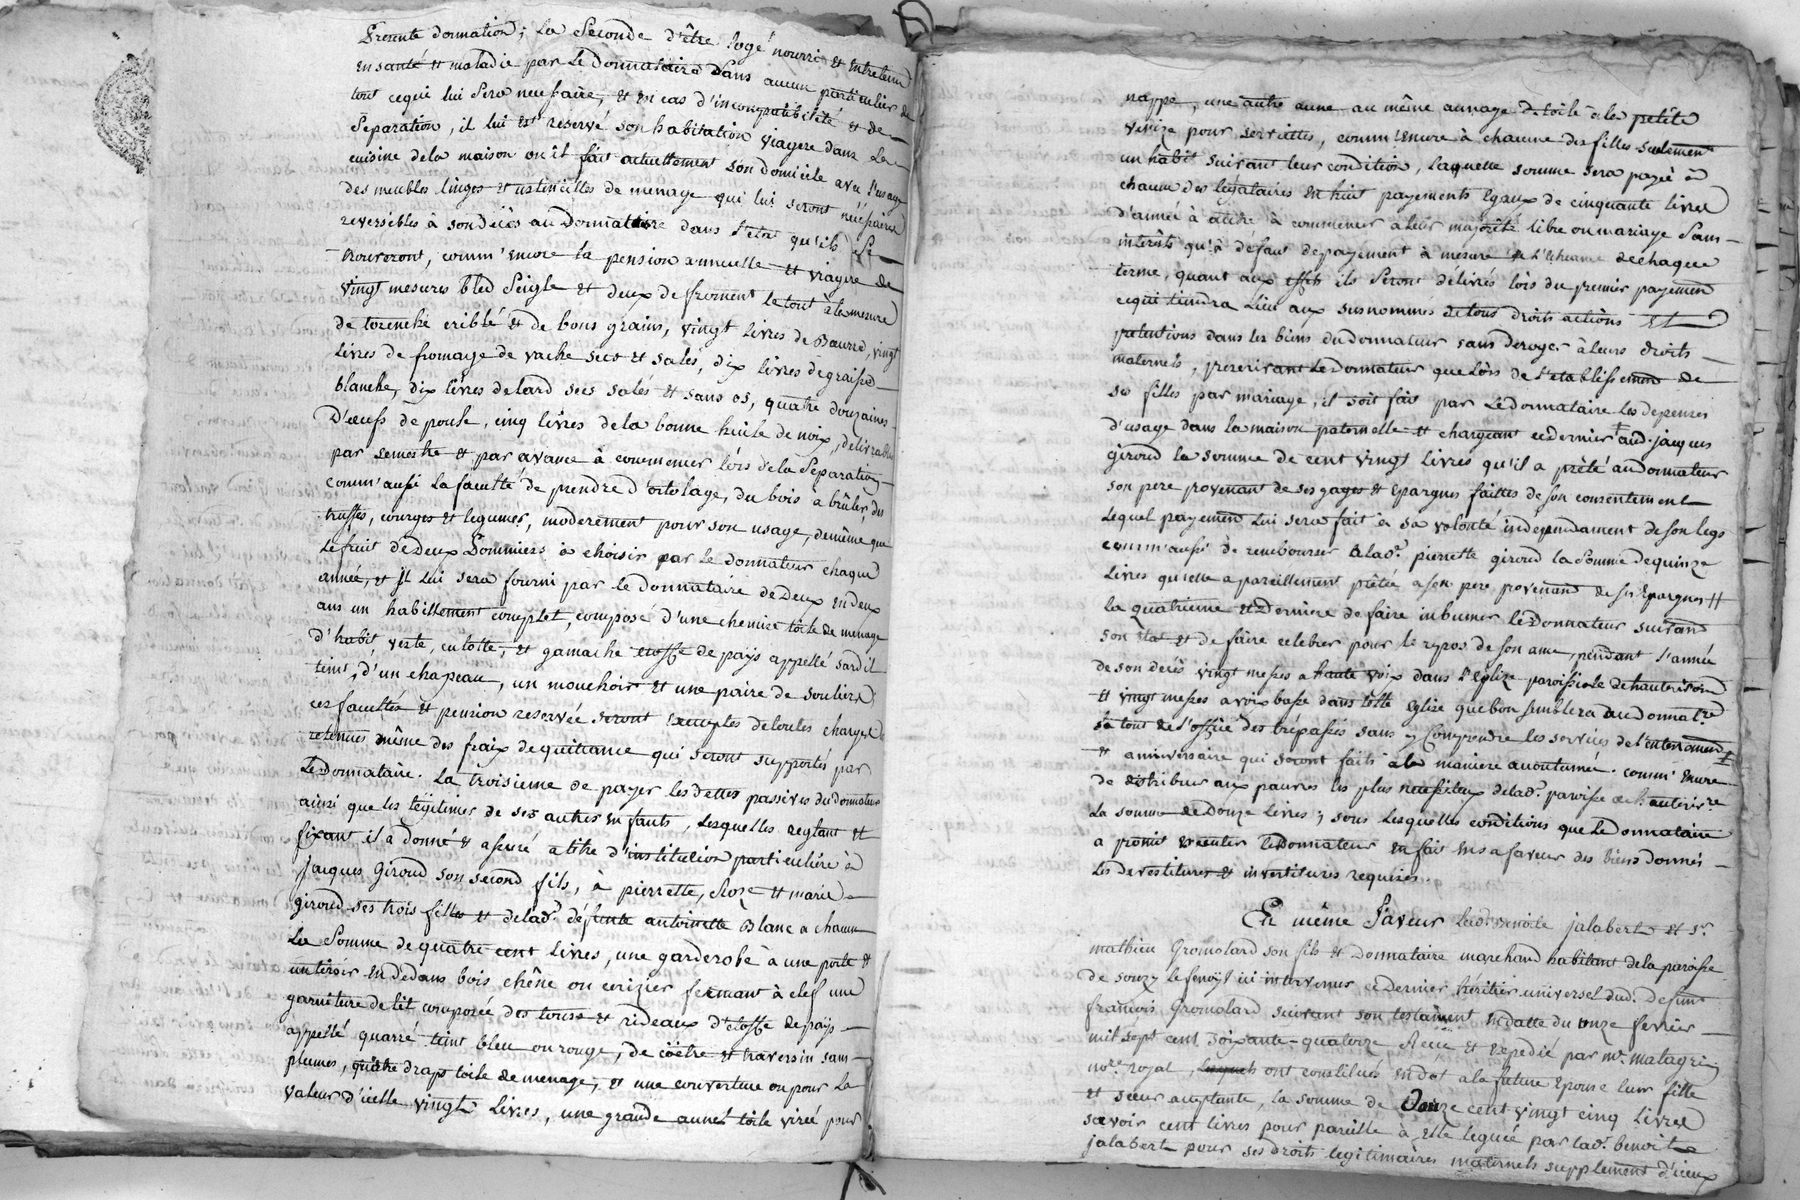 Présente donnation; La Seconde d'être logé nourri et entretenu
en santé et maladie par Le donnataire dans aucun particulier de
tout cequi lui Sera necessaire, et en cas d'incompatibilité et de
Separation, il lui est reservé son habitation viagere dans La
cuisine dela maison ou il fait actuellement son domicile avec l'usage
des meubles, linges et ustencilles de menage qui lui seront nécéssaires
reversibles à son décès au donnataire dans l'etat qu'ils se
trouveront, comm'encore la pension annuelle et viagere de
vingt mesures bled Seigle et deux de froment le tout à la mesure
de torenché criblé et de bons grains, vingt Livres de Beurre, vingt
Livres de fromage de vache secs et salés, dix livres de graisse
blanche, dix livres de lard secs salés et sans os, quatre douzaines
D'oeufs de poule, cinq livres de la bonne huile de noix, délivrables
par semestre et par avance à commencer lors de la Separation
comm'aussi La faculté de prendre d'ortolage, du bois à brûler, des
truffes, courges et legumes, moderement pour son usage, demême que
Le fruit de Deux Pommiers à choisir par le donnateur chaque
année, et Il Lui sera fourni par le donnataire de Deux en deux
ans un habillement complet, composé d'une chemise toile de menage
d'habit, veste, culotte, et gamache etoffe de païs appellé sardit
teint, d'un chapeau, un mouchoir et une paire de souliers
ces facultés et pension reservée seront exemptes de toutes charges
retenues même des fraix de quittance qui seront supportés par
Le donnataire. La troisieme de payer les dettes passives du donnateur
ainsi que les légitimes de ses autres enfants, lesquelles reglant et
fixant il a donné et assuré a titre d'institution particulière à
Jacques Giroud son second fils, à pierrette, Roze et marie
giroud ses trois filles et de lad.e défunte antoinette Blanc a chacun
La Somme de quatre cent Livres, une garderobe à une porte et
un tiroir en dedans bois chêne ou cerizier fermant à clef une
garniture de lit composée des tours et rideaux d'etoffe de païs
appellé quarré teint bleu ou rouge, de coëtre et traversin sans
plumes, quatre draps toile de menage, et une couverture ou pour La
valeur d'icelle vingt Livres, une grande aune toile virée pour
nappe, une autre aune au même aunage de toile à la petite
venize pour serviettes, comm'encore à chacune des filles seulement
un habit suivant leur condition, Laquelle somme sera payée à
chacun des légataires en huit payements Egaux de cinquante livres
d'année à autre à commencer à leur majorité libre ou mariage Sans
intérêts qu'à défaut de payement à mesure de l'echeance de chaque
terme, quant aux effets ils seront délivrés lors du premier payement
cequi tiendra Lieu aux susnommés de tous droits actions et
pretentions dans les biens du donnateur sans déroger à leurs droits
maternels, prescrivant Le donnateur que Lors de l'etablissement de
ses filles par mariage, il soit fait par Le donnataire les depenses
d'usage dans la maison paternelle et chargeant ce dernier aud. jacques
giroud la somme de cent vingt Livres qu'il a prêté au donnateur
son pere provenant de ses gages et Epargnes faittes de son consentement
Lequel payement Lui sera fait à sa volonté independament de son legs
comm'aussi de rembourser à lad.e pierrette giroud la somme de quinze
Livres qu'elle a pareillement prêtée a son pere provenant de ses Epargnes
la quatrieme et Derniere de faire inhumer le Donnateur suivant
son état et de faire celebrer pour le repos de son ame, pendant l'année
de son decès vingt messes a haute voix dans l'Eglize paroissiale de hauterivoire
et vingt messes a voix basse dans telle Eglize que bon semblera au donnat.re
le tout de l'office des trépassés sans y comprendre les services de l'enterrement
et aniversaire qui seront faits à la maniere accoutumée. comm'encore
de distribuer aux pauvres les plus necessiteux de lad.e paroisse de hauterivoire
La somme de Douze Livres; sous Lesquelles conditions que Le Donnataire
a promit executer Le Donnateur en fait en sa faveur des biens donnés
Les devestitures et investitures requises.
En même Faveur Lad. benoite jalabert et s.r
mathieu Gromolard son fils et donnataire marchand habitant de la paroisse
de souzy ici intervenus ce dernier héritier universel dud. defunt
francois Gromolard, suivant son testament en datte du onze fevrier
mil sept cent soixante-quatorze Receu et expedié par m.e matagrin
no.re royal, Lesquels ont constitués en dot a la future Epouse leur fille
et soeur acceptante, la somme de Onze cent vingt cinq livres
sçavoir cent livres pour pareille à Elle leguée par lad.e benoite
jalabert pour ses droits legitimaires maternels supplement d'iceux